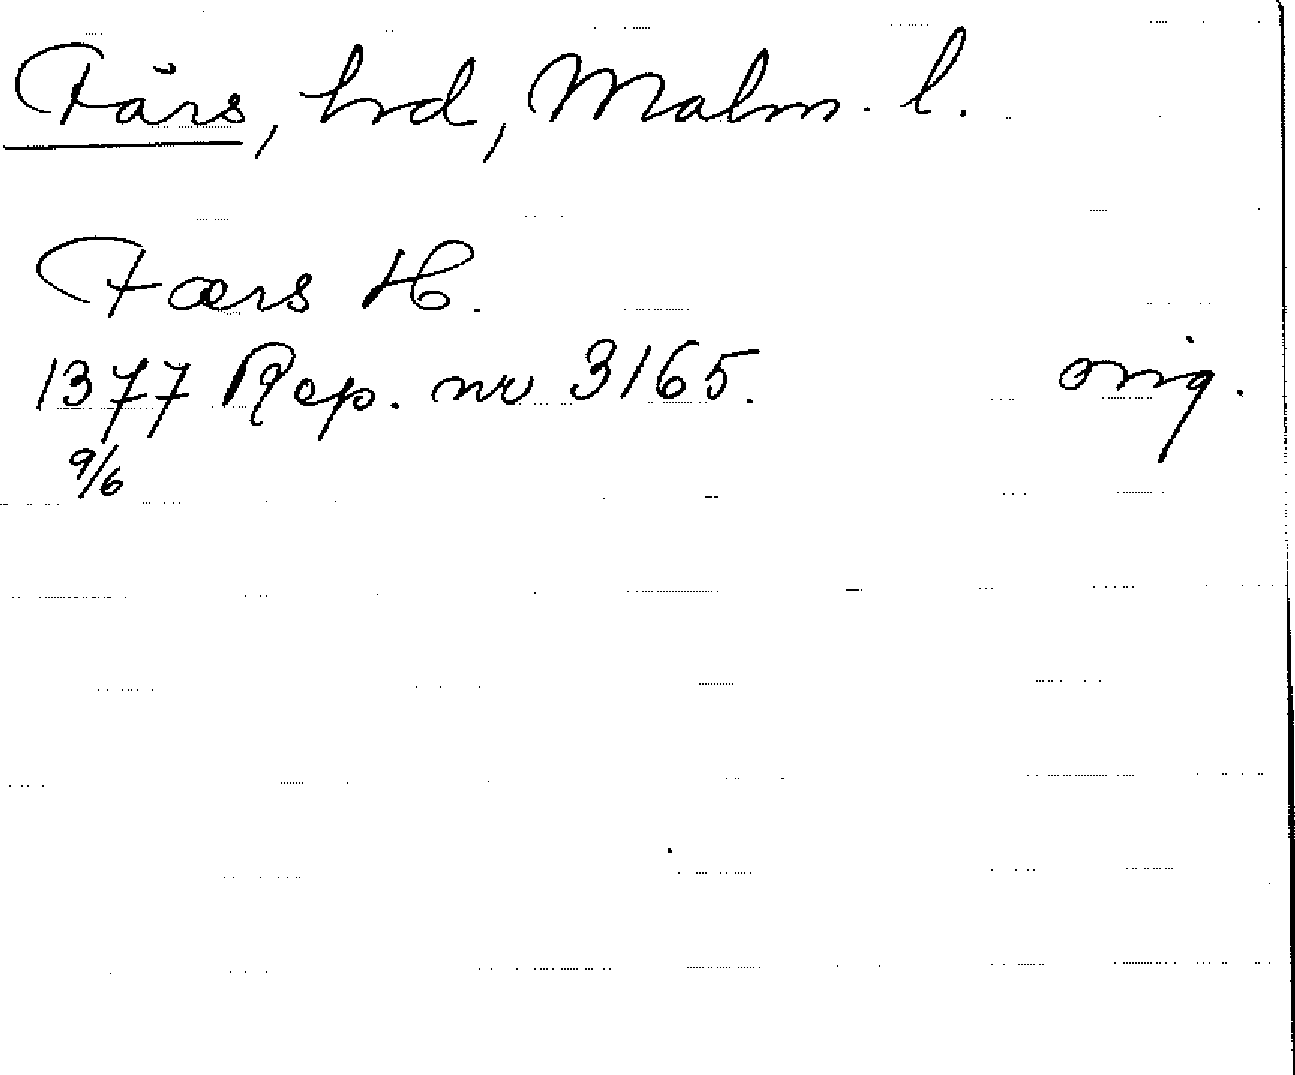 Färs, hrd, Malm. l.
Færs H.
1377 Rep. nr 3165. orig.
9/6